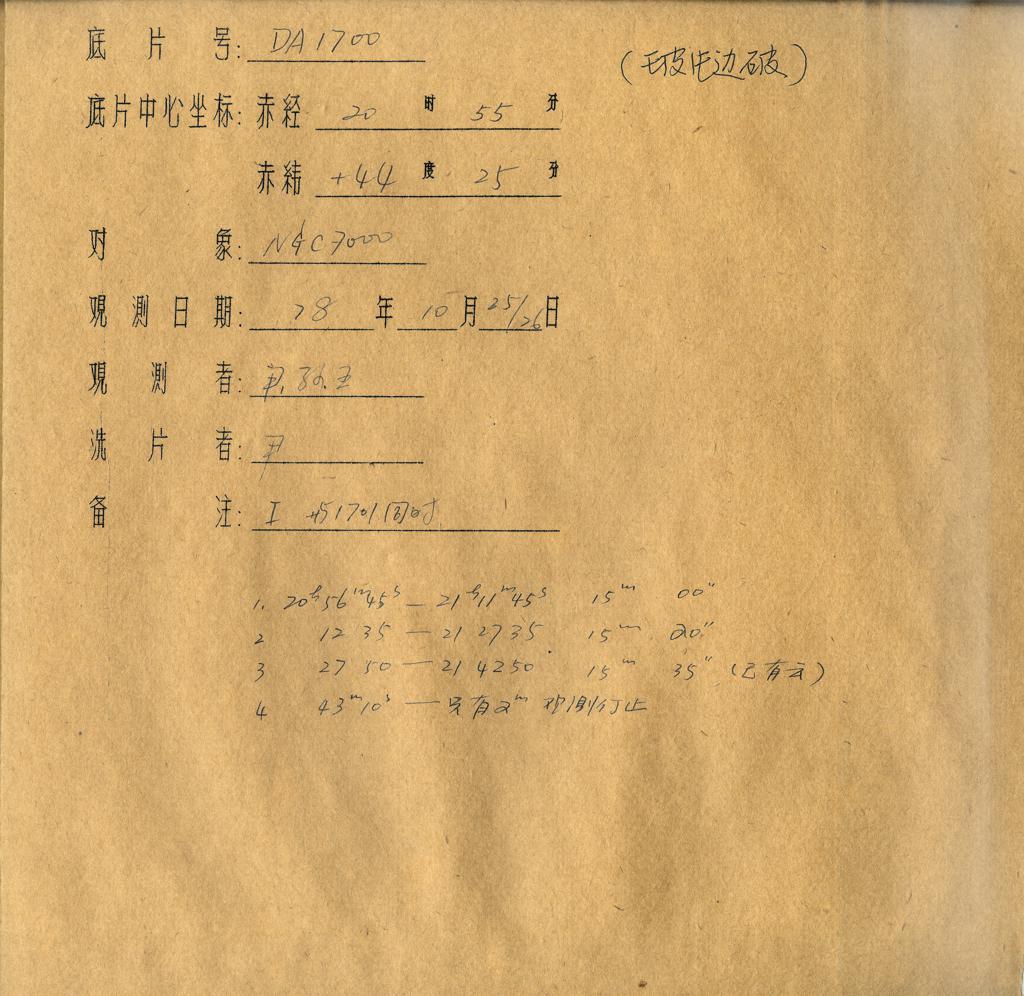 底片号: DA1700
(玻片边破)
底片中心坐标: 赤经 20 时 55 分
赤纬 +44 度 25 分
对象: NGC7000
观测日期: 78 年 10 月 25/26 日
观测者: 尹.孙.王
洗片者: 尹
备注: I 与1701同时
1. 20h56m45s — 21h11m45s 15m 00"
2 12 35 — 21 27 35 15m 20"
3 27 50 — 21 42 50 15m 35" (已有云)
4 43m10s — 只有2m 观测停止